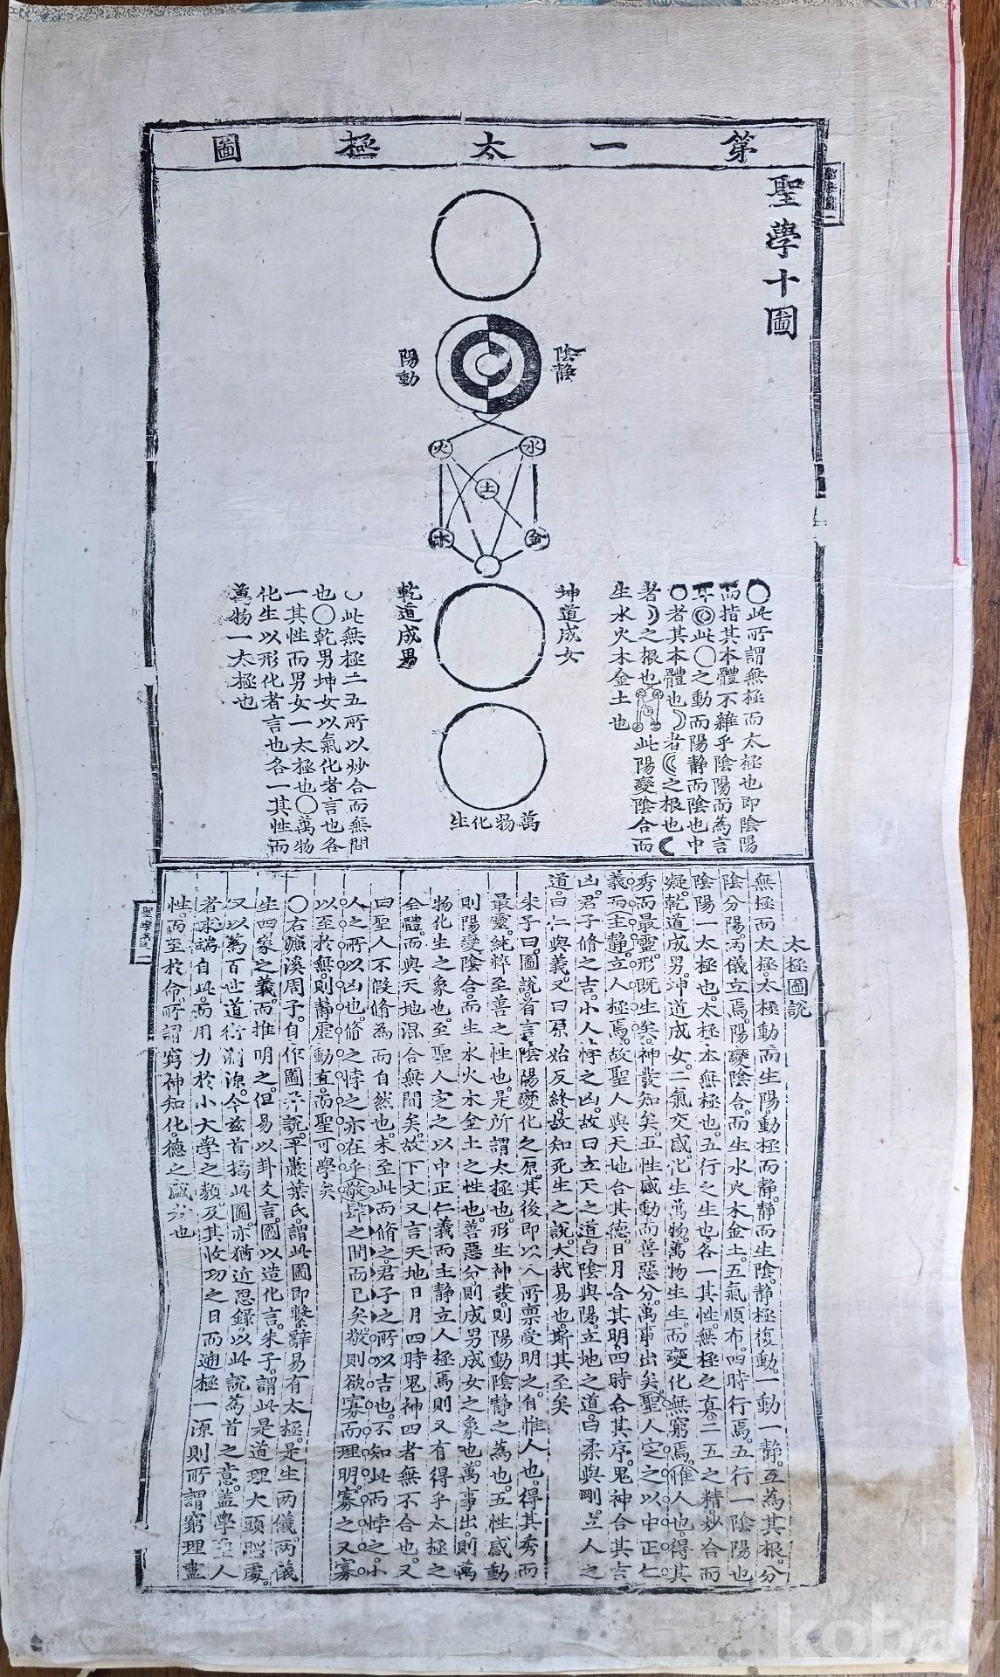 第一太極圖
聖學十圖
陰靜
陽動
火
水
土
木
金
坤道成女
乾道成男
萬物化生
○此所謂無極而太極也即陰陽
而指其本體不雜乎陰陽而為言
耳◎此○之動而陽靜而陰也中
○者其本體也☽者☾之根也☾
者☽之根也此陽變陰合而
生水火木金土也
此無極二五所以妙合而無間
也○乾男坤女以氣化者言也各
一其性而男女一太極也○萬物
化生以形化者言也各一其性而
萬物一太極也
太極圖說
無極而太極。太極動而生陽。動極而靜。靜而生陰。靜極復動。一動一靜。互為其根。分
陰分陽。兩儀立焉。陽變陰合。而生水火木金土。五氣順布。四時行焉。五行一陰陽也
陰陽一太極也。太極本無極也。五行之生也各一其性。無極之真。二五之精。妙合而
凝。乾道成男。坤道成女。二氣交感。化生萬物。萬物生生而變化無窮焉。惟人也。得其
秀而最靈。形既生矣。神發知矣。五性感動而善惡分。萬事出矣。聖人定之以中正仁
義。而主靜。立人極焉。故聖人與天地合其德。日月合其明。四時合其序。鬼神合其吉
凶。君子修之吉。小人悖之凶。故曰立天之道。曰陰與陽。立地之道。曰柔與剛。立人之
道。曰仁與義。又曰原始反終。故知死生之說。大哉易也。斯其至矣
朱子曰。圖說。首言陰陽變化之原。其後即以人所稟受明之。自惟人也。得其秀而
最靈。純粹至善之性也。是所謂太極也。形生神發。則陽動陰靜之為也。五性感動
則陽變陰合。而生水火木金土之性也。善惡分。則成男成女之象也。萬事出。則萬
物化生之象也。至聖人定之以中正仁義而主靜立人極焉。則又有得乎太極之
全體。而與天地混合無間矣。故下文又言天地日月四時鬼神四者無不合也。又
曰聖人不假修為而自然也。未至此而修之。君子之所以吉也。不知此而悖之。小
人之所以凶也。修之悖之。亦在乎敬肆之間而已矣。敬則欲寡而理明。寡之又寡
以至於無。則靜虛動直。而聖可學矣
○右濂溪周子。自作圖幷說。平巖葉氏。謂此圖即繫辭易有太極。是生兩儀。兩儀
生四象之義。而推明之。但易以卦爻言。圖以造化言。朱子。謂此是道理大頭腦處。
又以為百世道術淵源。今茲首揭此圖。亦猶近思錄。以此說為首之意。蓋學聖人
者。求端自此。而用力於小大學之類。及其收功之日。而遡極一源。則所謂窮理盡
性。而至於命。所謂窮神知化。德之盛者也
kobay